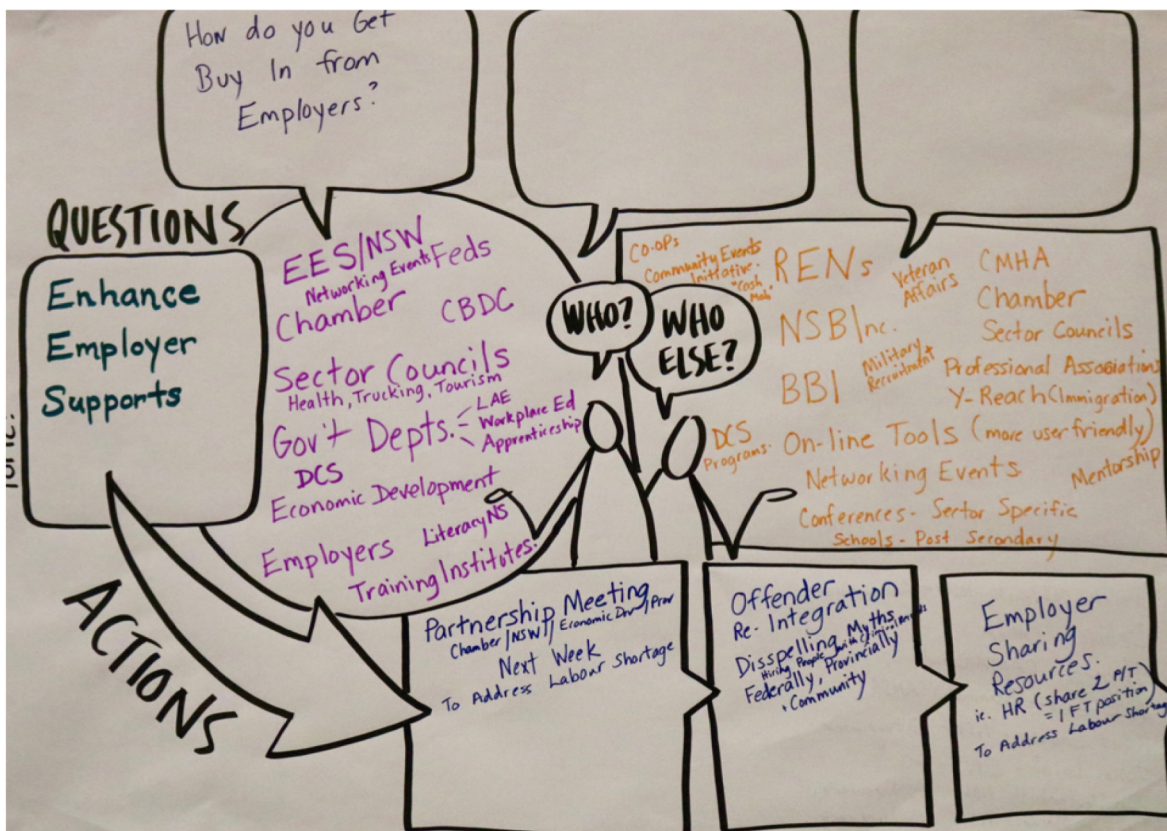 How do you Get
Buy In from
Employers?
QUESTIONS
Enhance
Employer
Supports
EES/NSW
Networking Events
Feds
Chamber
CBDC
Sector Councils
Health, Trucking, Tourism
Gov't Depts.
LAE
Workplace Ed
Apprenticeship
DCS
Economic Development
Employers
Literacy NS
Training Institutes.
WHO?
WHO
ELSE?
CO-OPs
Community Events
Initiative.
"Cash
Mob"
RENs
Veteran
Affairs
CMHA
Chamber
NSBInc.
Sector Councils
Military
Recruitment
Professional Associations
BBI
Y-Reach (Immigration)
DCS
Programs.
On-line Tools (more user friendly)
Networking Events
Mentorship
Conferences - Sector Specific
Schools - Post Secondary
ACTIONS
Partnership Meeting
Chamber/NSW/Economic Dev/Prov
Next Week
To Address Labour Shortage
Offender
Re-Integration
Disspelling Myths
Hiring People with Criminal Records
Federally, Provincially
+ Community
Employer
Sharing
Resources.
ie. HR (share 2 P/T
= 1 FT position)
To Address Labour Shortage